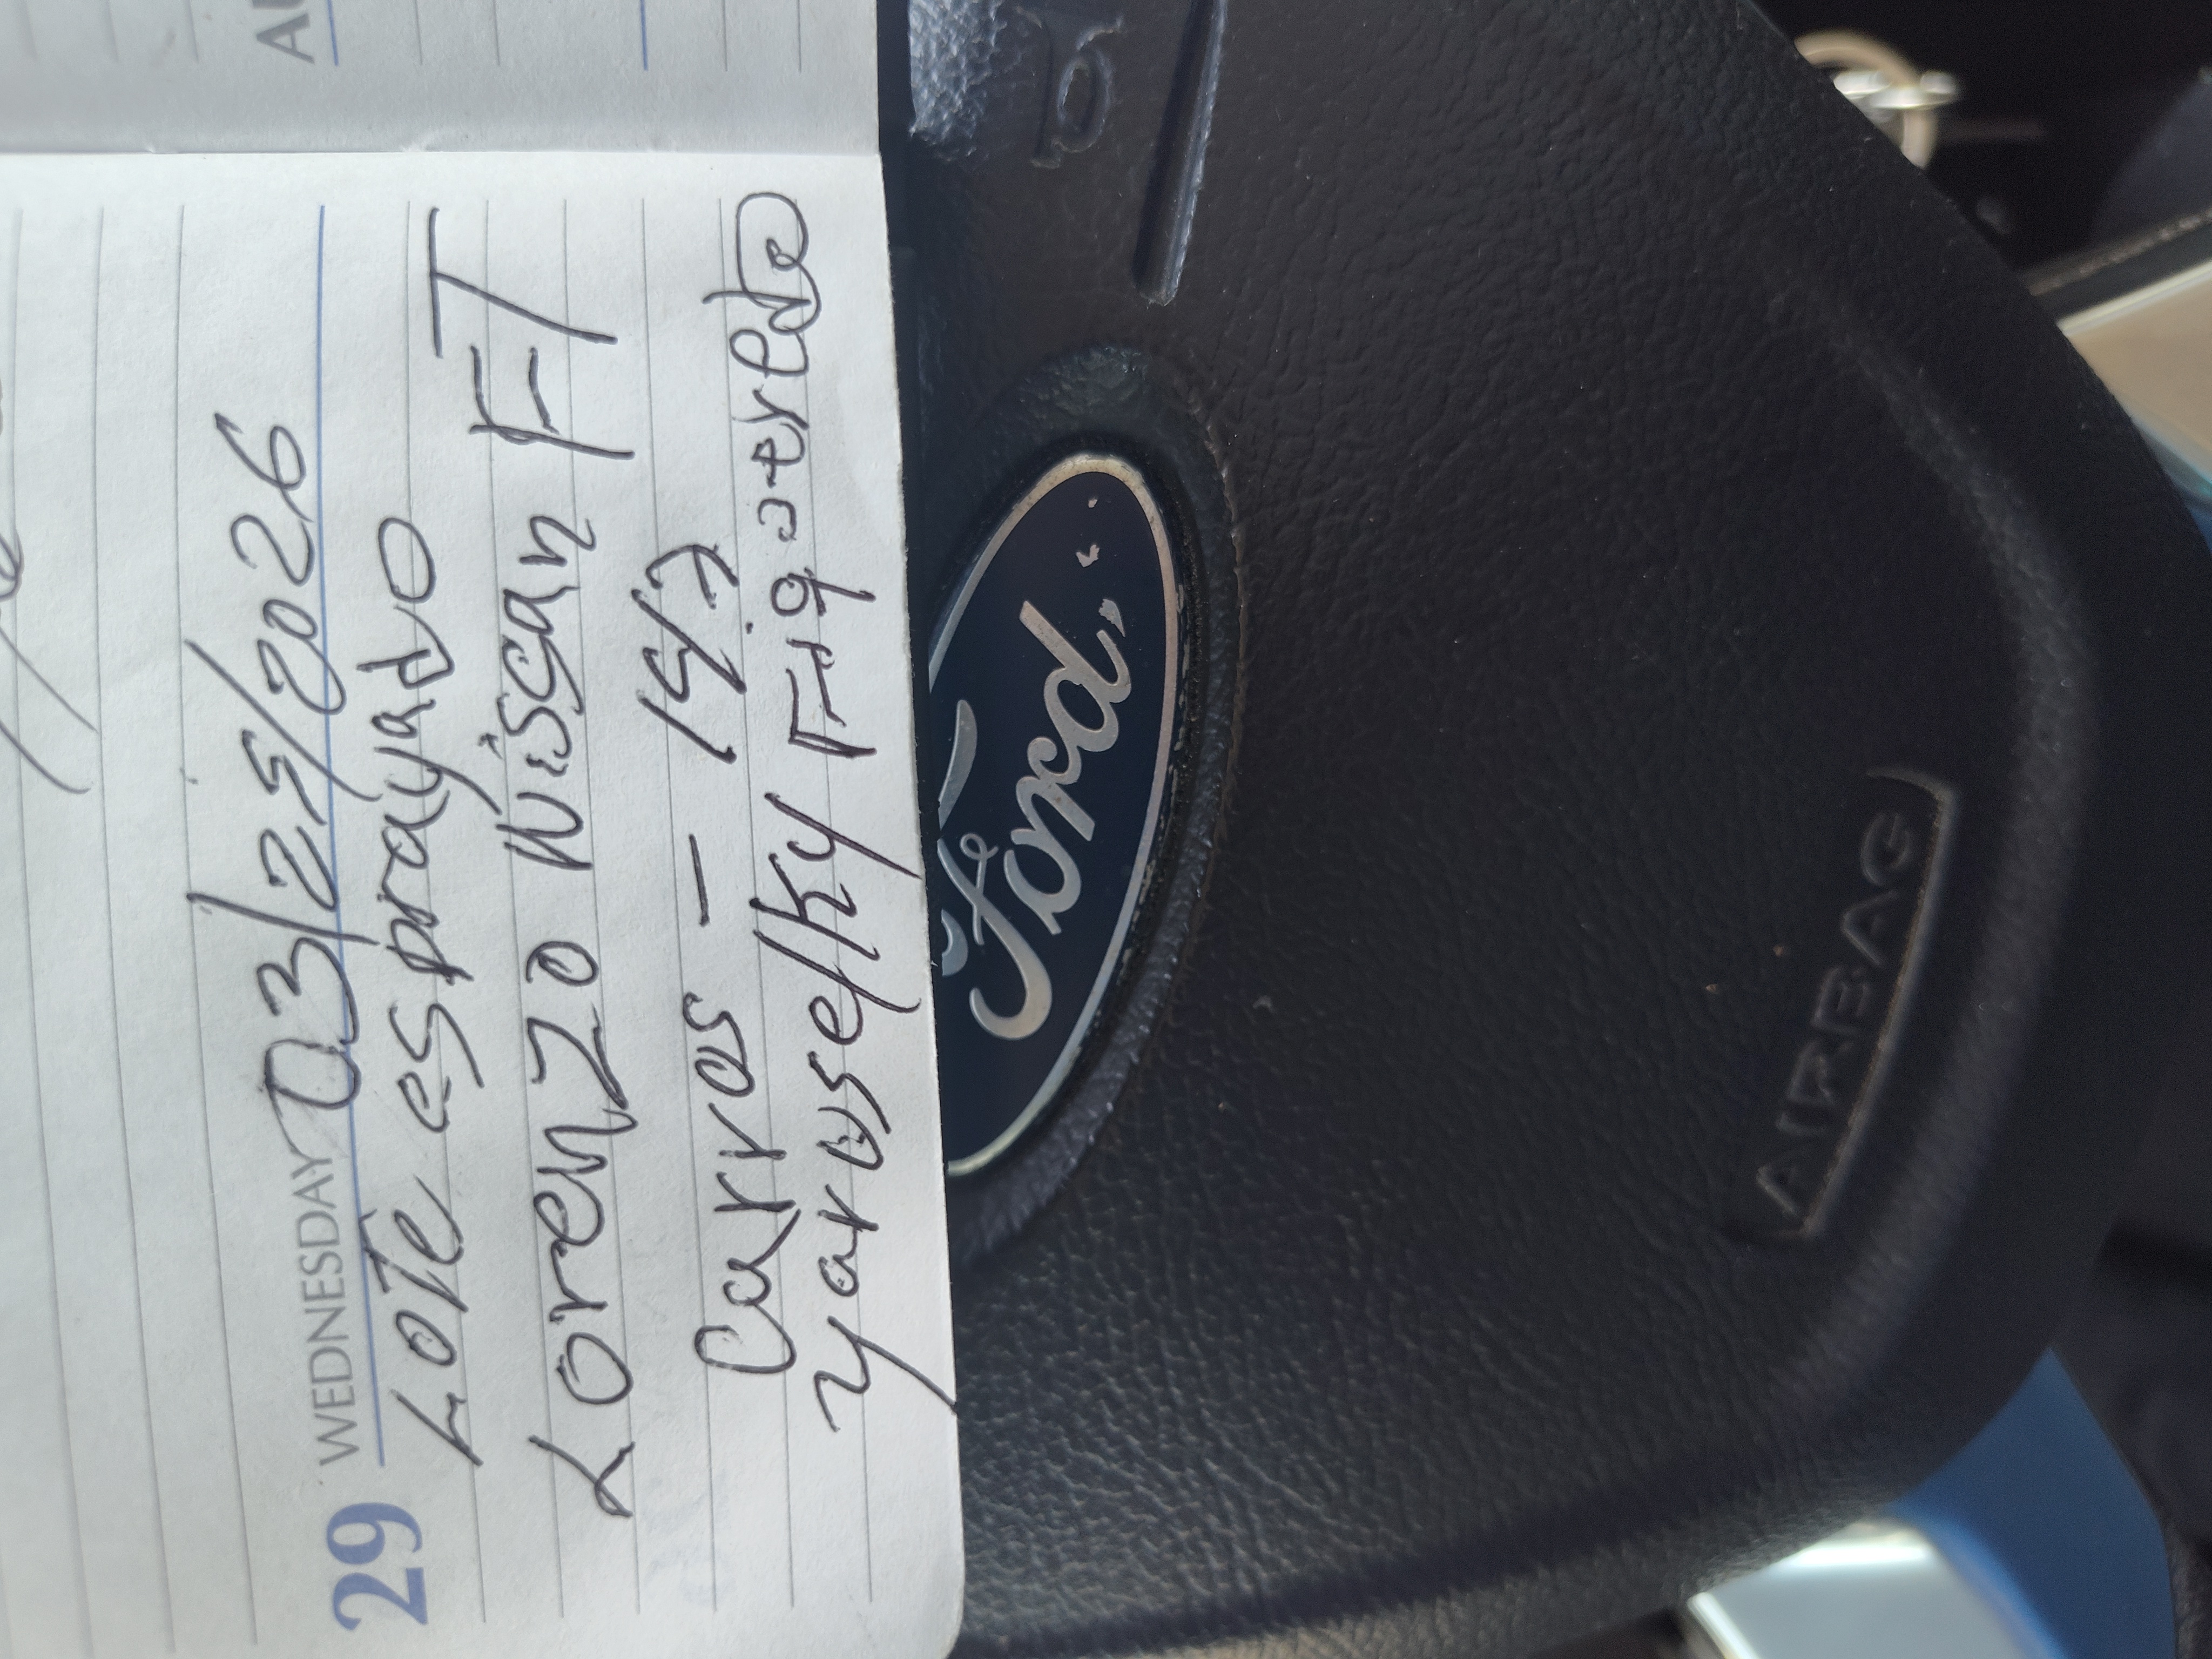 29 WEDNESDAY 03/25/2026
Lote esprayado
Lorenzo Wiscan FT
Carros - 147
yaruselky
Ford
AIRBAG